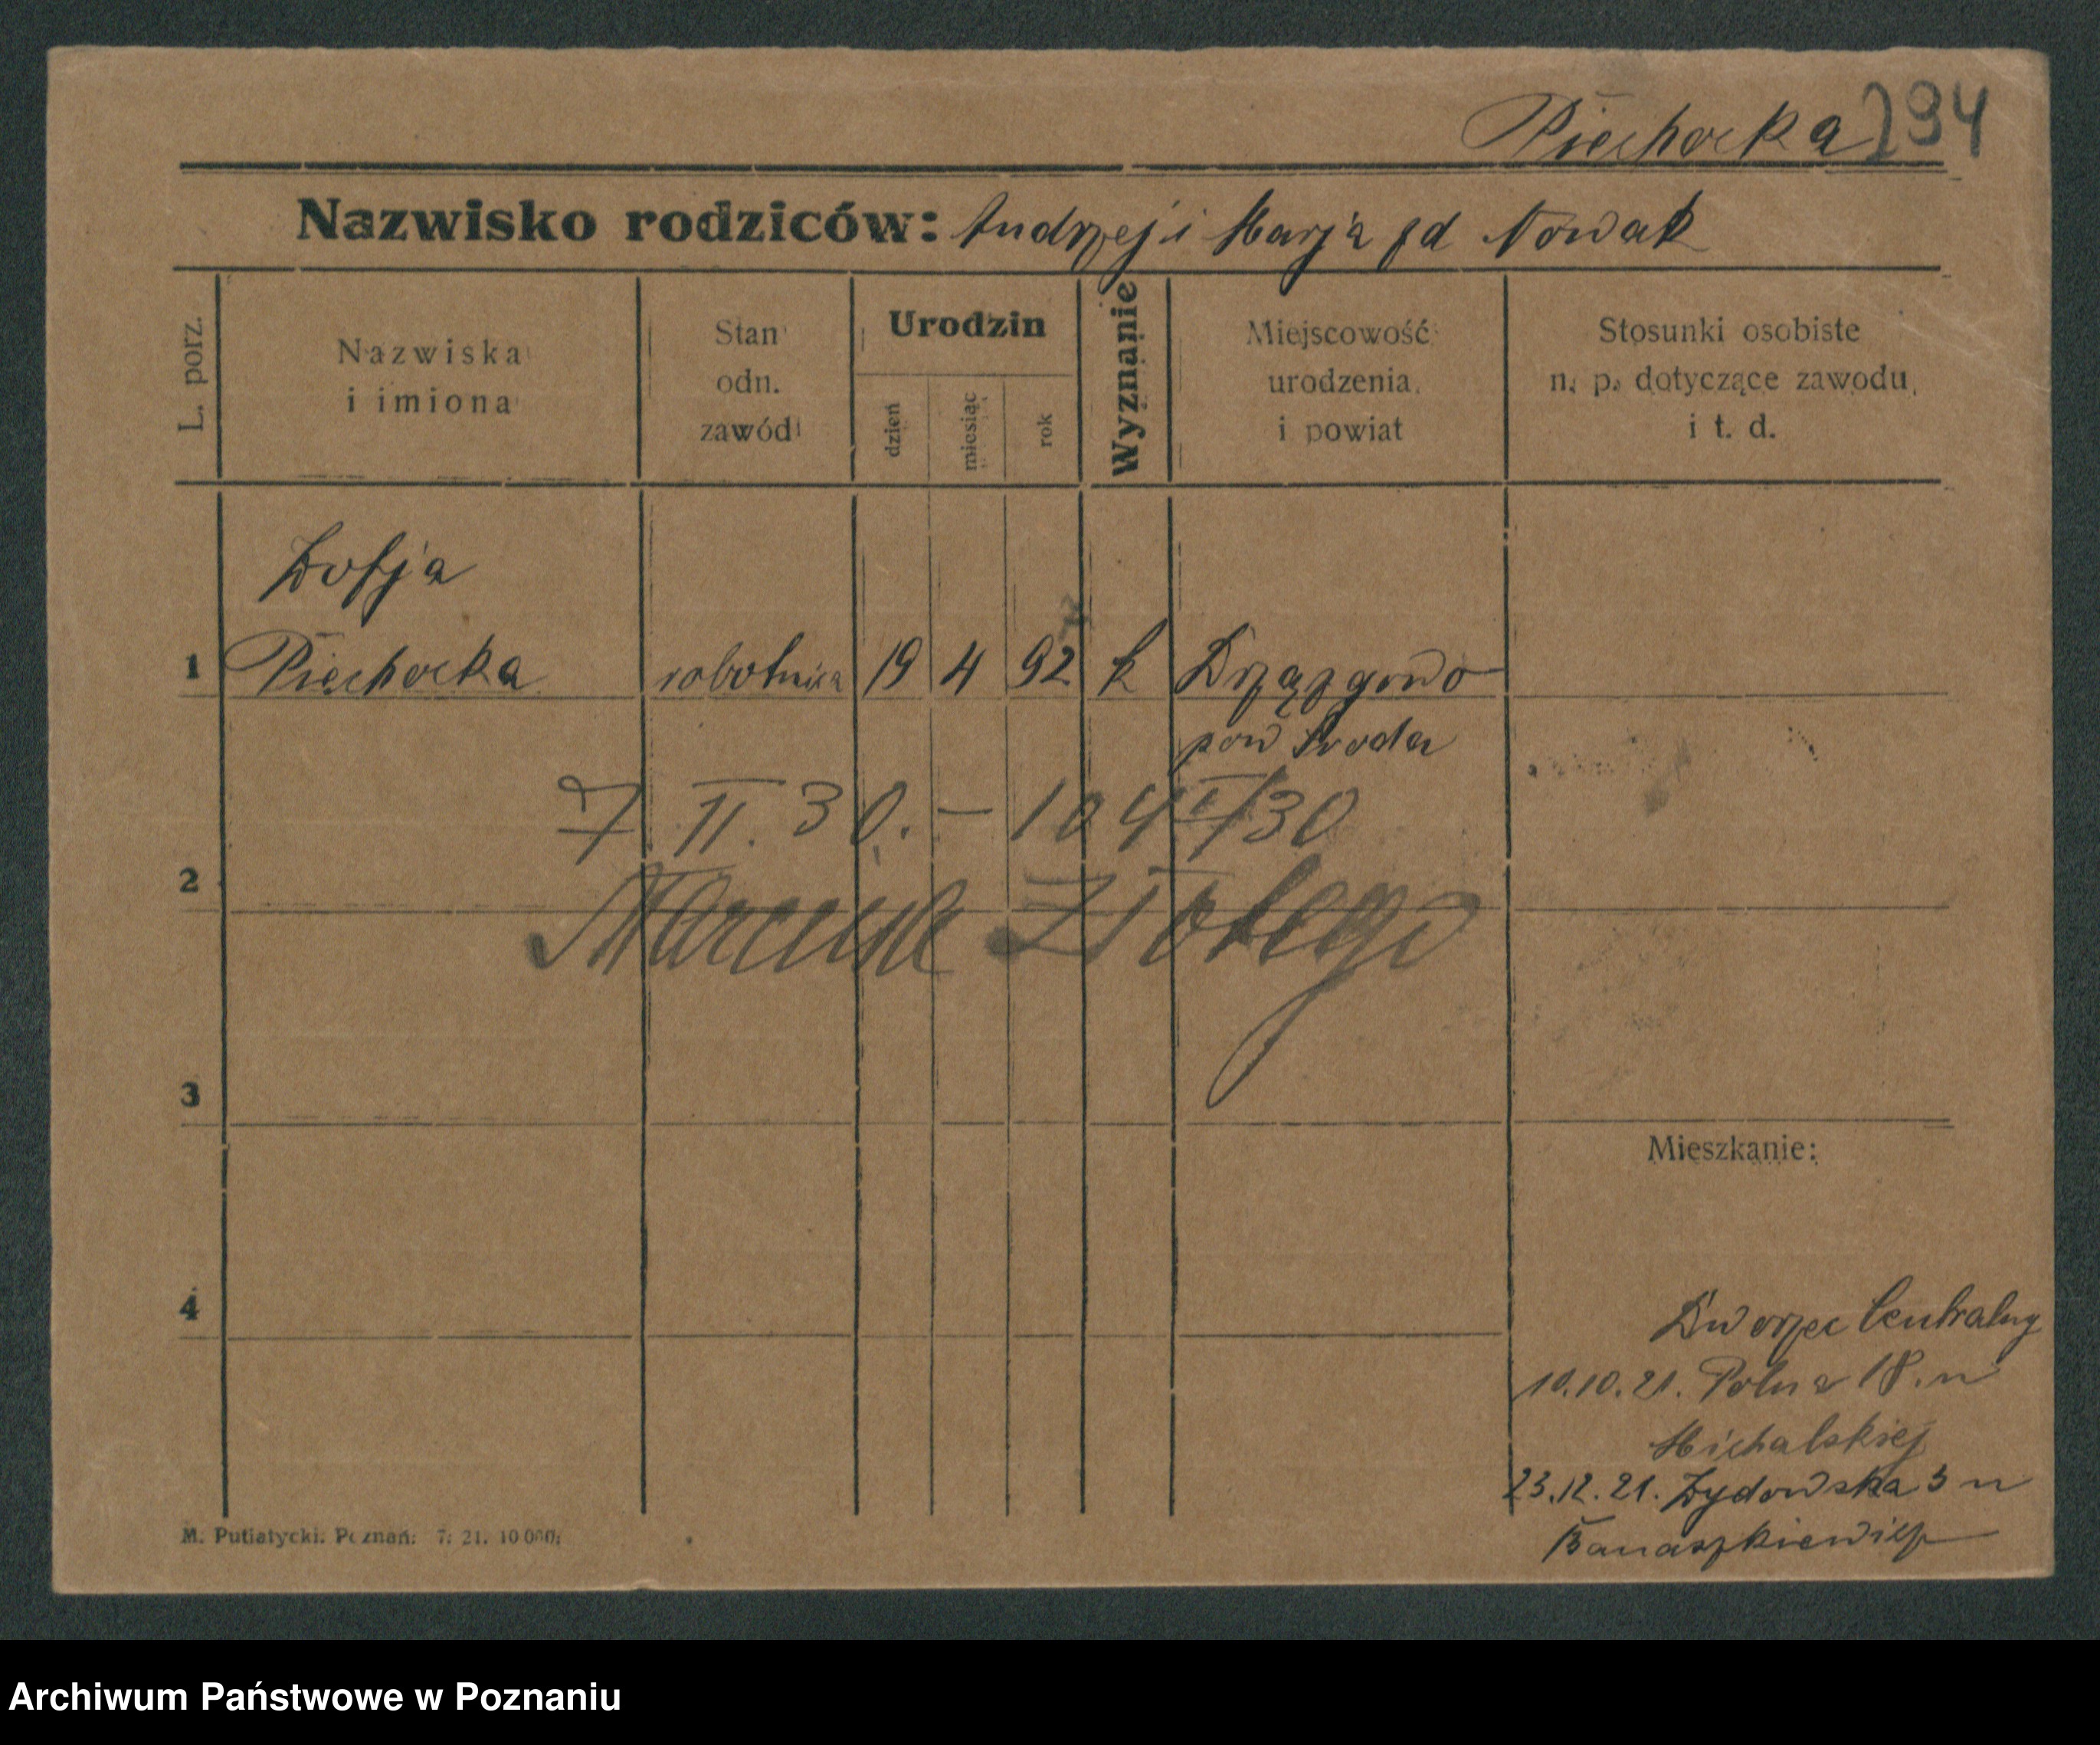 Piechocka 294
Nazwisko rodziców: Andrzej i Marja zd Nowak
L. porz.
Nazwiska
i imiona
Stan
odn.
zawód
Urodzin
dzień
miesiąc
rok
Wyznanie
Miejscowość
urodzenia
i powiat
Stosunki osobiste
n. p. dotyczące zawodu
i t. d.
Zofja
1 Piechocka robotnica 19 4 92 k Drzązgowo
pow Środa
7 II. 30. — 104 /30
2
3
Mieszkanie:
4
Dworzec Centralny
10.10.21. Polna 18. u
Michalskiej
23.12.21. Żydowska 3 u
Banaszkiewicz
M. Putiatycki. Poznań. 7. 21. 10 000.
Archiwum Państwowe w Poznaniu